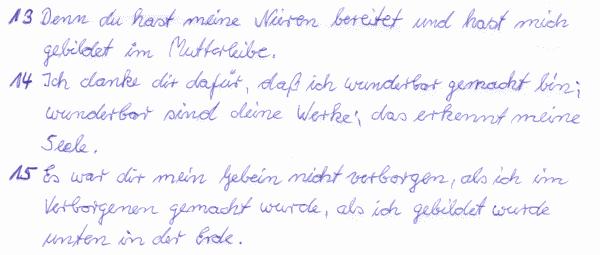 13 Denn du hast meine Nieren bereitet und hast mich
gebildet im Mutterleibe.
14 Ich danke dir dafür, daß ich wunderbar gemacht bin;
wunderbar sind deine Werke; das erkennt meine
Seele.
15 Es war dir mein Gebein nicht verborgen, als ich im
Verborgenen gemacht wurde, als ich gebildet wurde
unten in der Erde.